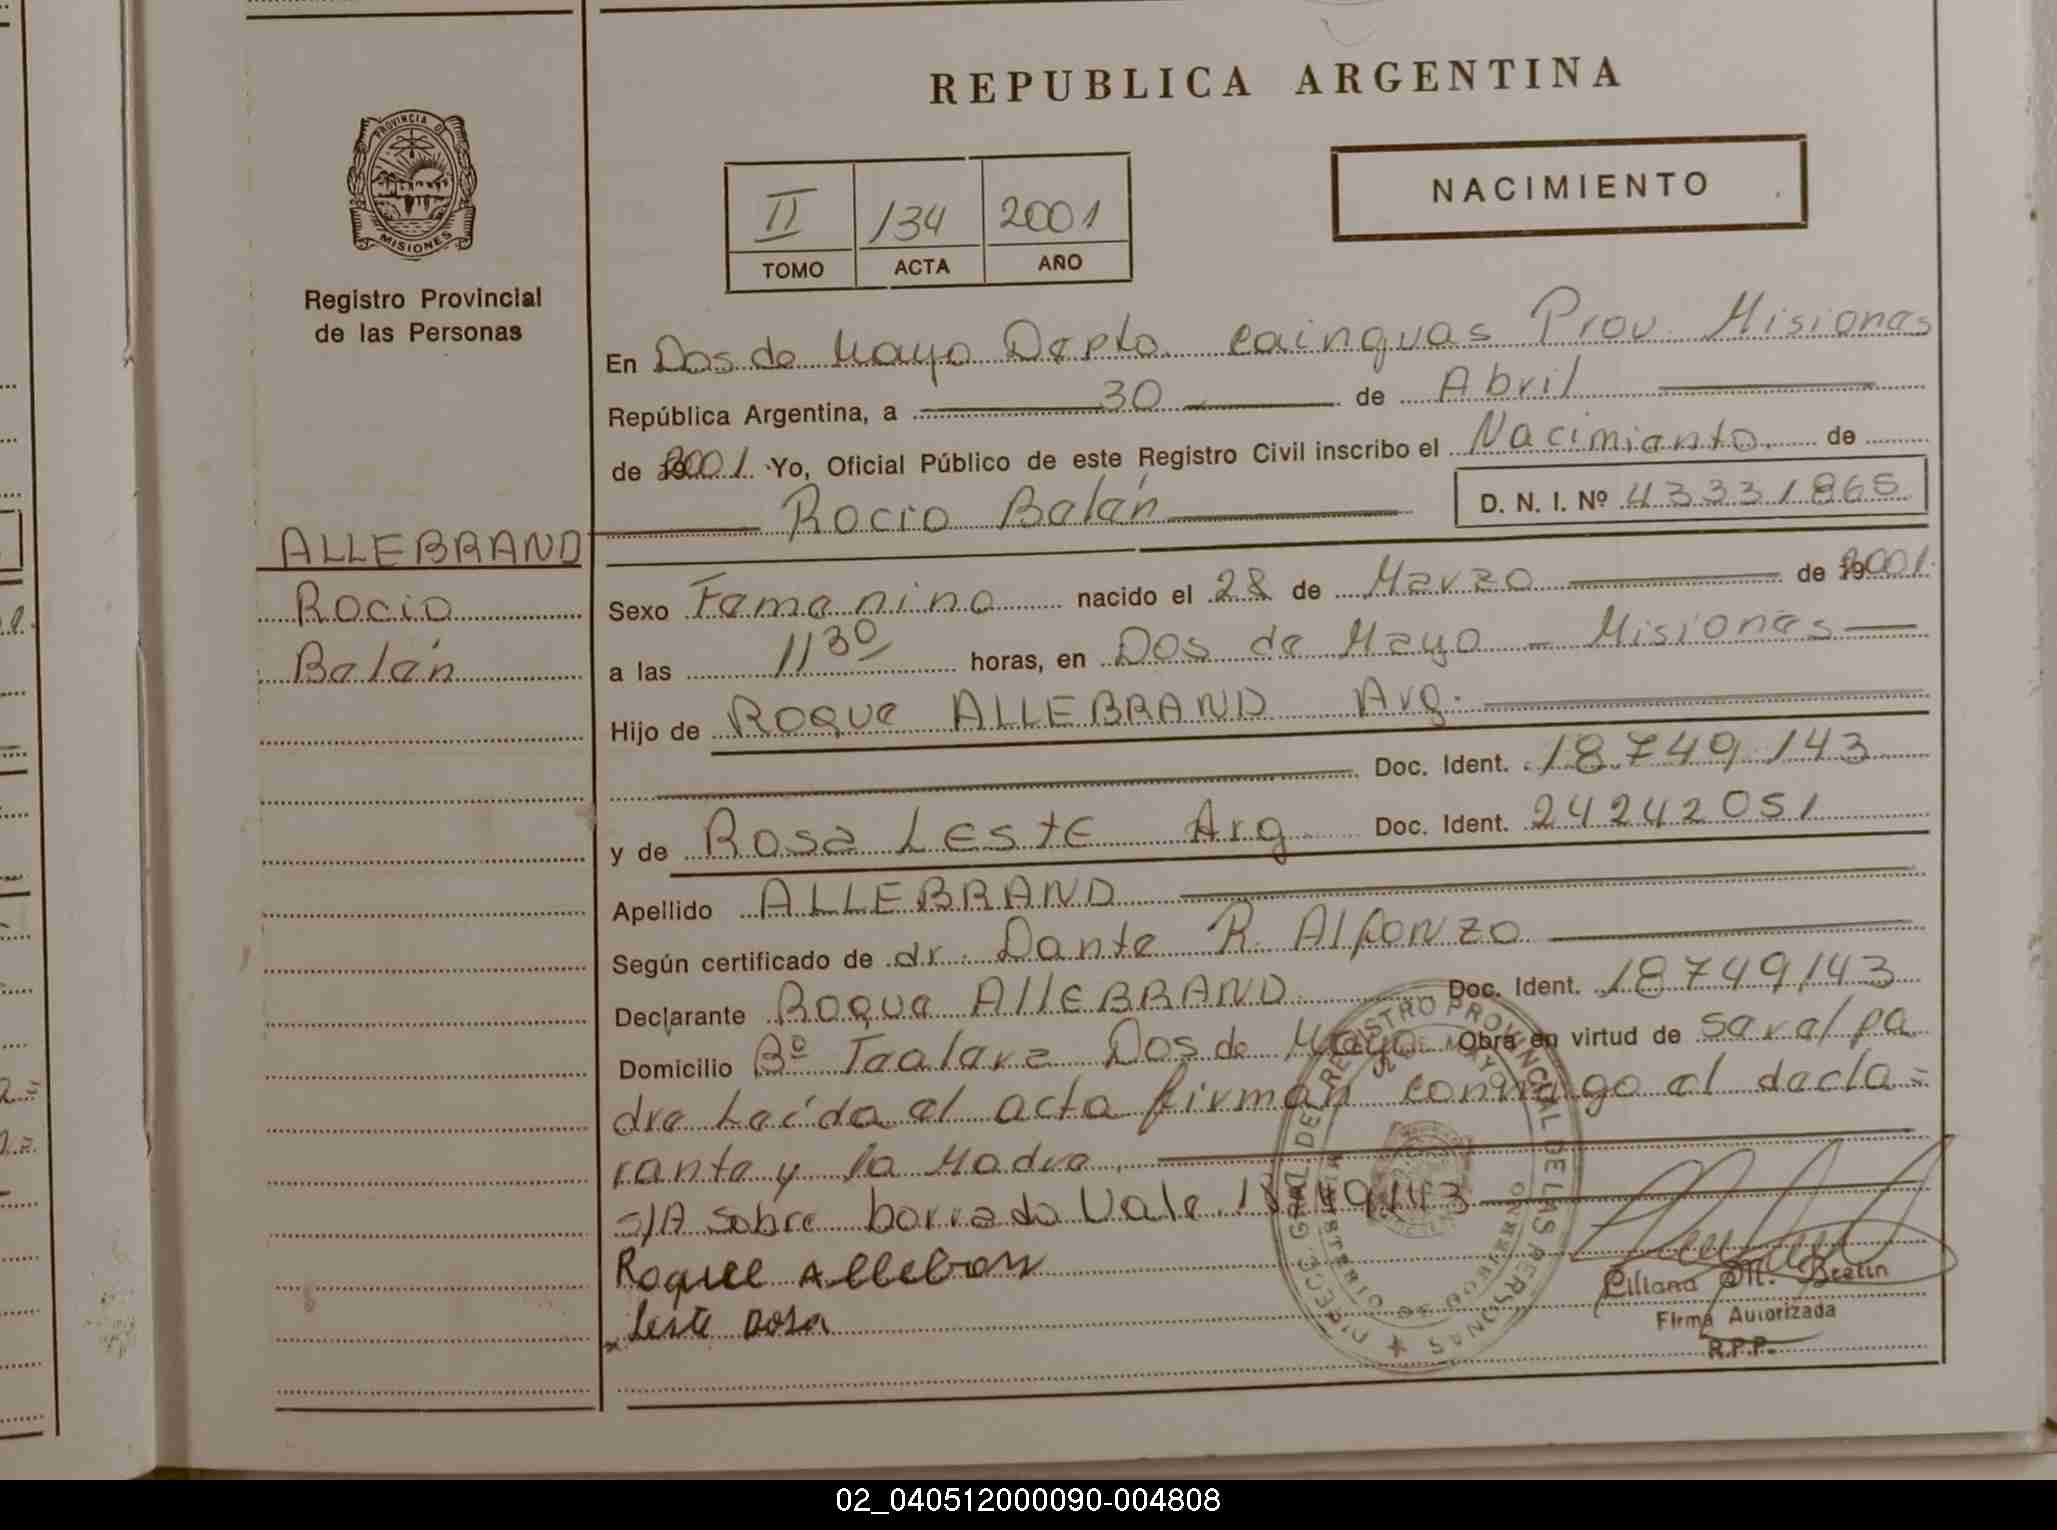 REPUBLICA ARGENTINA
PROVINCIA DE
MISIONES
Registro Provincial
de las Personas
II 134 2001
TOMO ACTA AÑO
NACIMIENTO
En Dos de Mayo Depto. Cainguas Prov. Misiones
República Argentina, a 30 de Abril
de 2001. Yo, Oficial Público de este Registro Civil inscribo el Nacimiento. de
Rocio Belén D. N. I. Nº 43331865
ALLEBRAND
Rocio
Belén
Sexo Femenino nacido el 28 de Marzo de 2001.
a las 11 30 horas, en Dos de Mayo - Misiones
Hijo de ROQUE ALLEBRAND Arg.
Doc. Ident. 18.749.143
y de Rosa LESTE Arg Doc. Ident. 24242051
Apellido ALLEBRAND
Según certificado de dr. Dante R. Alfonzo
Declarante ROQUE AllEBRAND Doc. Ident. 18749143
Domicilio Bº Dos de Mayo Obra en virtud de ser el pa
dre Leída el acta firman conmigo el decla=
rante y la Madre
S/A sobre borrado Vale. 18749143
Roque
Leste Rosa
DIRECC. GRAL. DEL REGISTRO PROVINCIAL DE LAS PERSONAS
Liliana M.
Firma Autorizada
R.P.P.
02_040512000090-004808